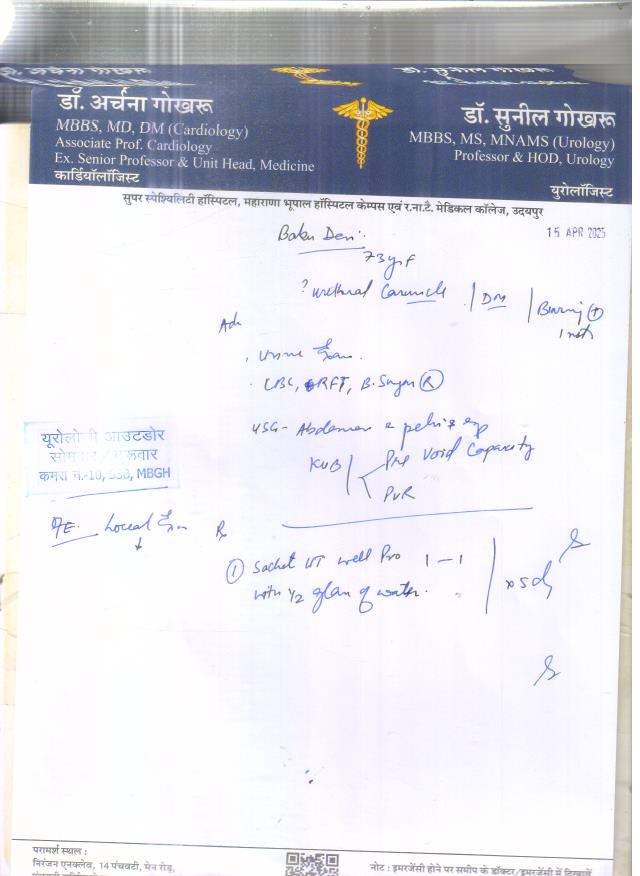 डॉ. अर्चना गोखरू
MBBS, MD, DM (Cardiology)
Associate Prof. Cardiology
Ex. Senior Professor & Unit Head, Medicine
कार्डियॉलॉजिस्ट
डॉ. सुनील गोखरू
MBBS, MS, MNAMS (Urology)
Professor & HOD, Urology
यूरोलॉजिस्ट
सुपर स्पेश्यिलिटी हॉस्पिटल, महाराणा भूपाल हॉस्पिटल केम्पस एवं र.ना.टै. मेडिकल कॉलेज, उदयपुर
15 APR 2025
73yr F
? Urethral Caruncle | DM | Burning (+)
Adv
Urine Exam.
CBC, RFT, B. Sugar (R)
USG - Abdomen & pelvis
KUB Pre Void Capacity
PVR
यूरोलोजी आउटडोर
सोमवार / गुरूवार
कमरा न.-10, SSB, MBGH
O/E. Local Exam
Rx
① Sachet UT well Pro 1-1
with 1/2 glass of water. x 5d
परामर्श स्थल :
निरंजन एनक्लेव, 14 पंचवटी, मेन रोड़,
नोट : इमरजेंसी होने पर समीप के डॉक्टर/इमरजेंसी में दिखावें